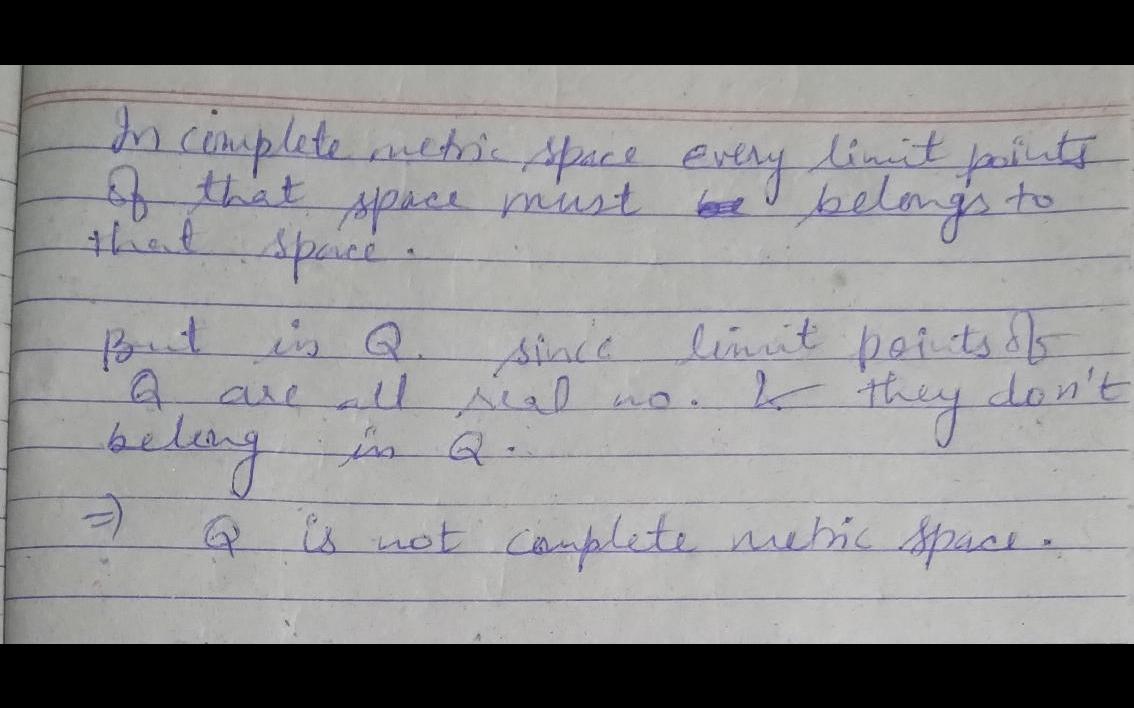 In complete metric space every limit points
of that space must belongs to
that space.
But in Q. since limit points of
Q are all real no. & they don't
belong in Q.
⇒ Q is not complete metric space.